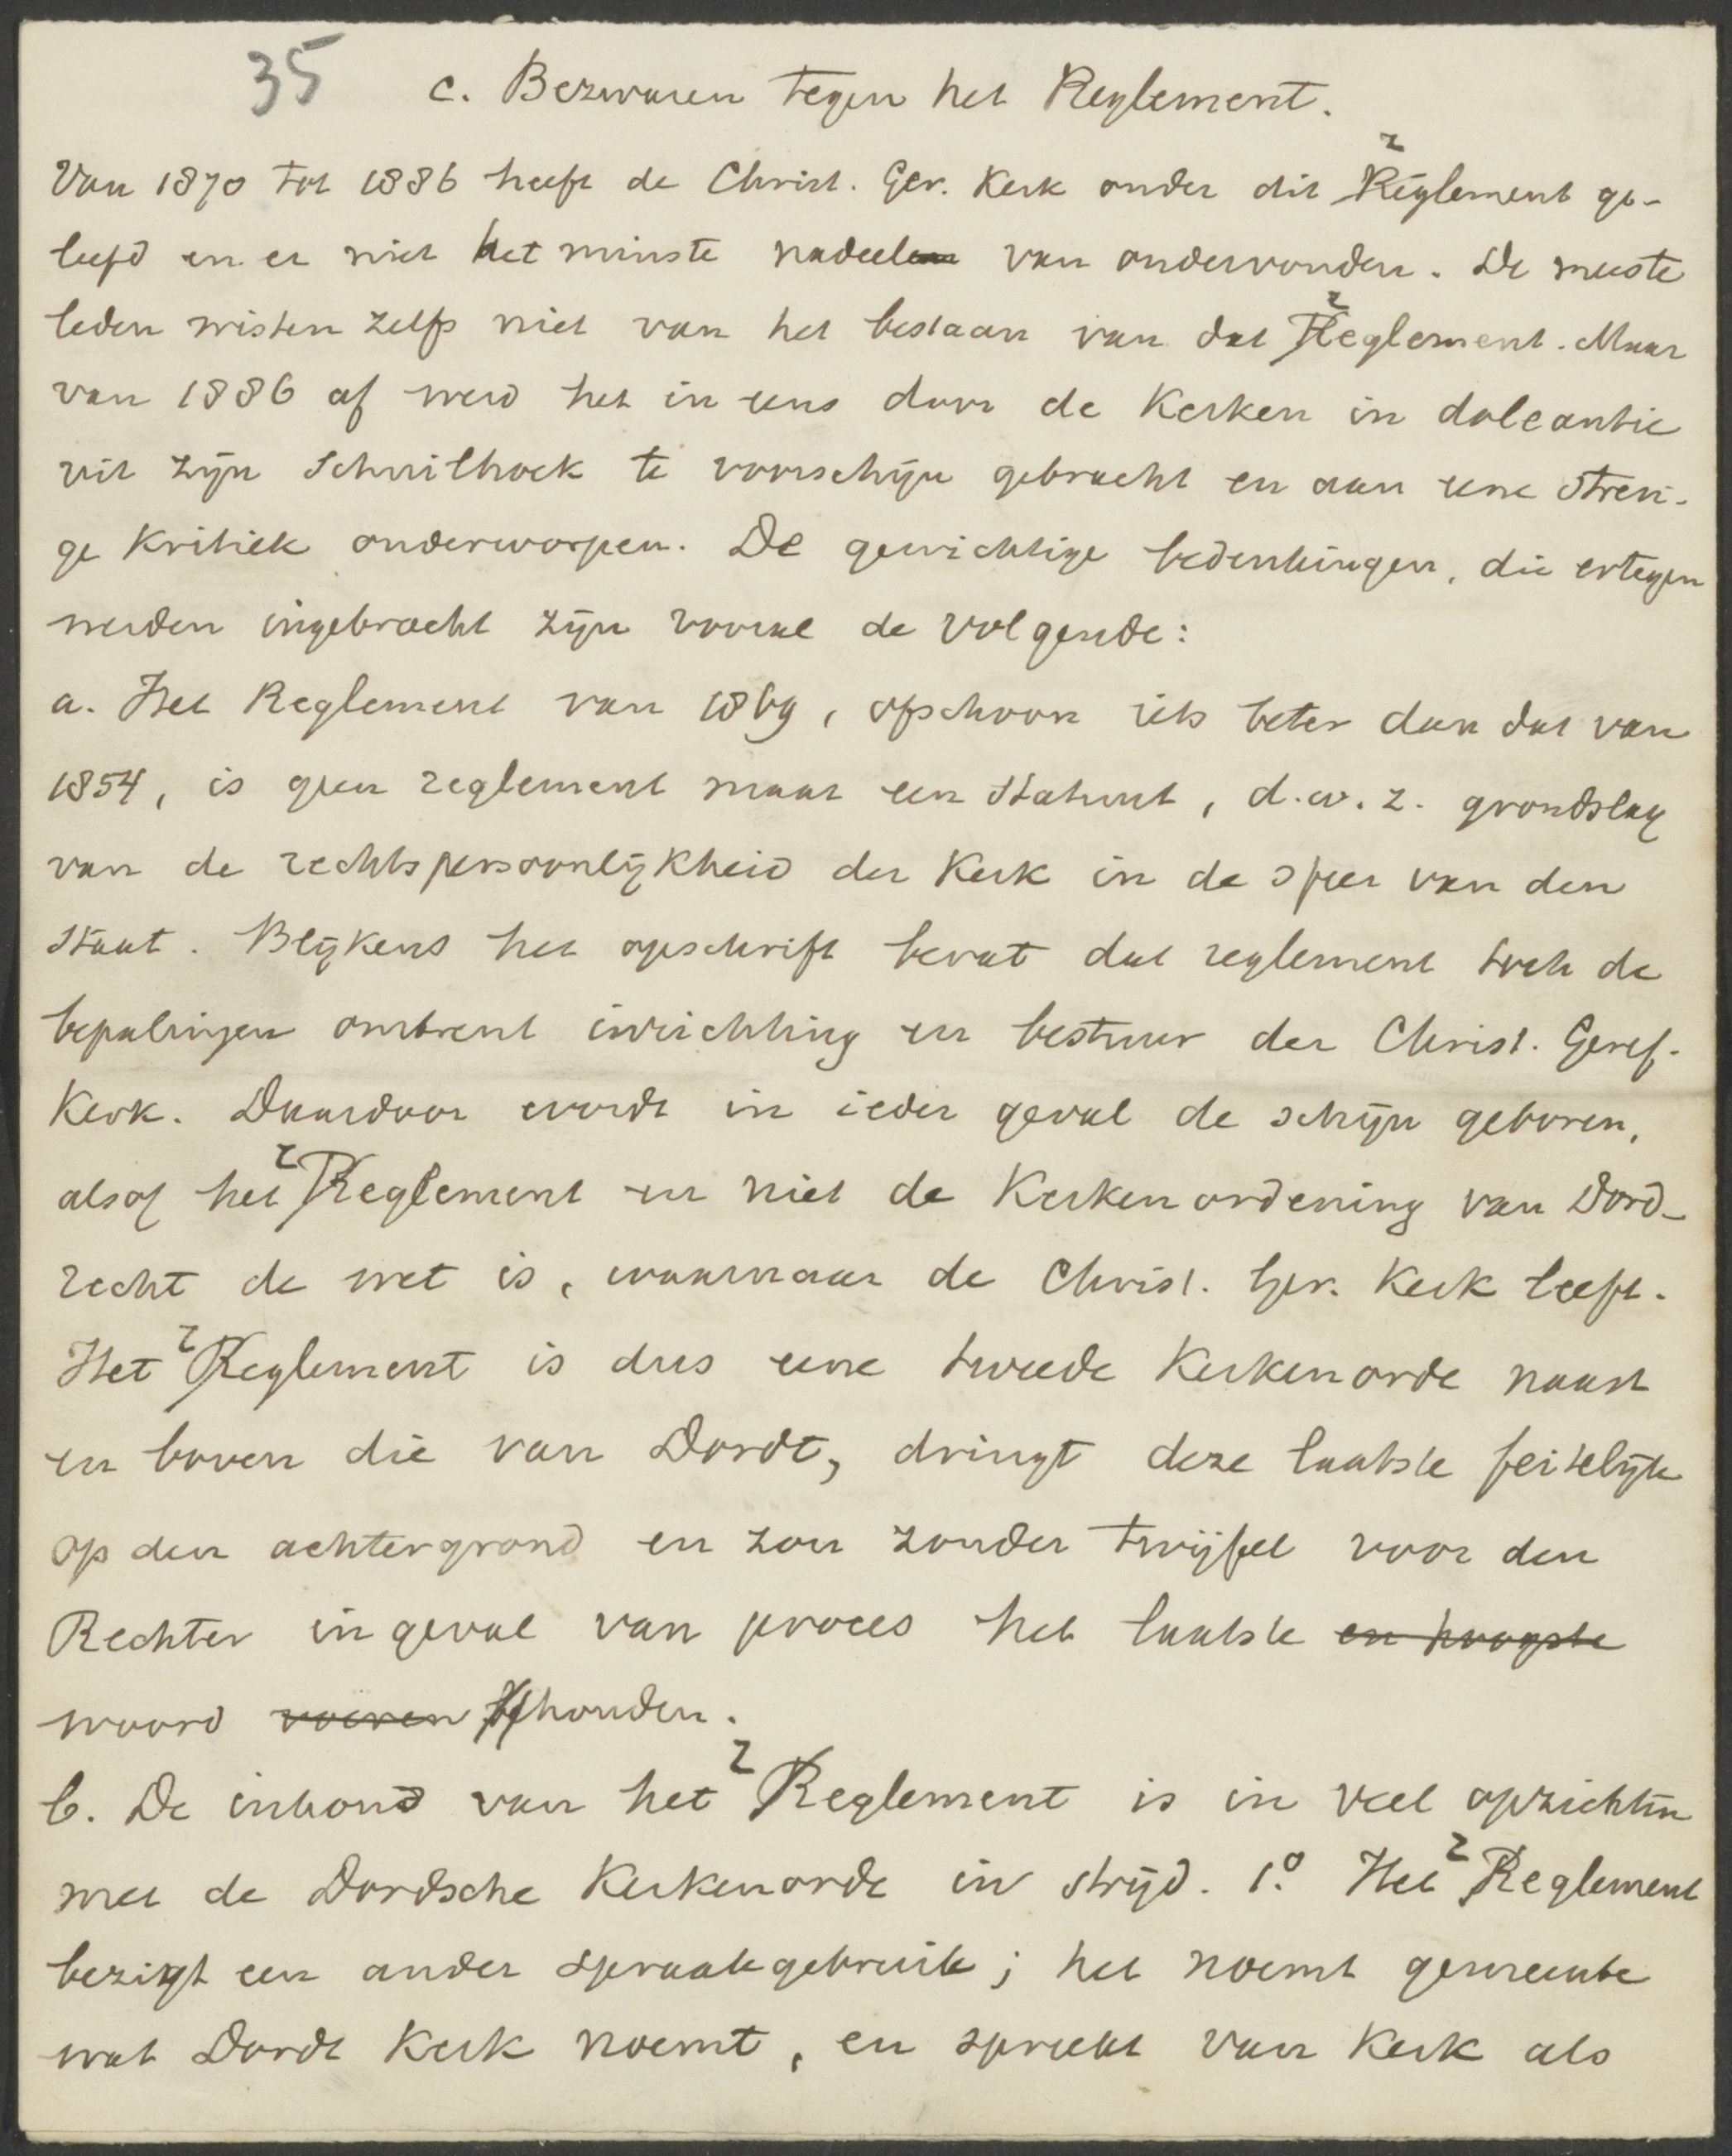 35
c. Bezwaren tegen het Reglement.
Van 1870 tot 1886 heeft de Christ. Ger. Kerk onder dit reglement ge-
leefd en er niet het minste nadeel van ondervonden. De meeste
leden wisten zelfs niet van het bestaan van dat reglement. Maar
van 1886 af werd het in eens door de Kerken in doleantie
uit zijn schuilhoek te voorschijn gebracht en aan eene stren-
ge kritiek onderworpen. De gewichtige bedenkingen, die ertegen
werden ingebracht zijn vooral de volgende:
a. Het Reglement van 1869, ofschoon iets beter dan dat van
1854, is geen reglement maar een Statuut, d.w.z. grondslag
van de rechtspersoonlijkheid der Kerk in de sfeer van den
Staat. Blijkens het opschrift bevat dat reglement toch de
bepalingen omtrent inrichting en bestuur der Christ. Geref.
Kerk. Daardoor wordt in ieder geval de schijn geboren,
alsof het reglement en niet de Kerkenordening van Dord-
recht de wet is, waarnaar de Christ. Ger. Kerk leeft.
Het reglement is dus eene tweede Kerkenorde naast
en boven die van Dordt, dringt deze laatste feitelijk
op den achtergrond en zou zonder twijfel voor den
Rechter in geval van proces het laatste en hoogste
woord voeren behouden.
b. De inhoud van het reglement is in veel opzichten
met de Dordsche Kerkenorde in strijd. 1.° Het reglement
bezigt een ander spraakgebruik; het noemt gemeente
wat Dordt Kerk noemt, en spreekt van Kerk als